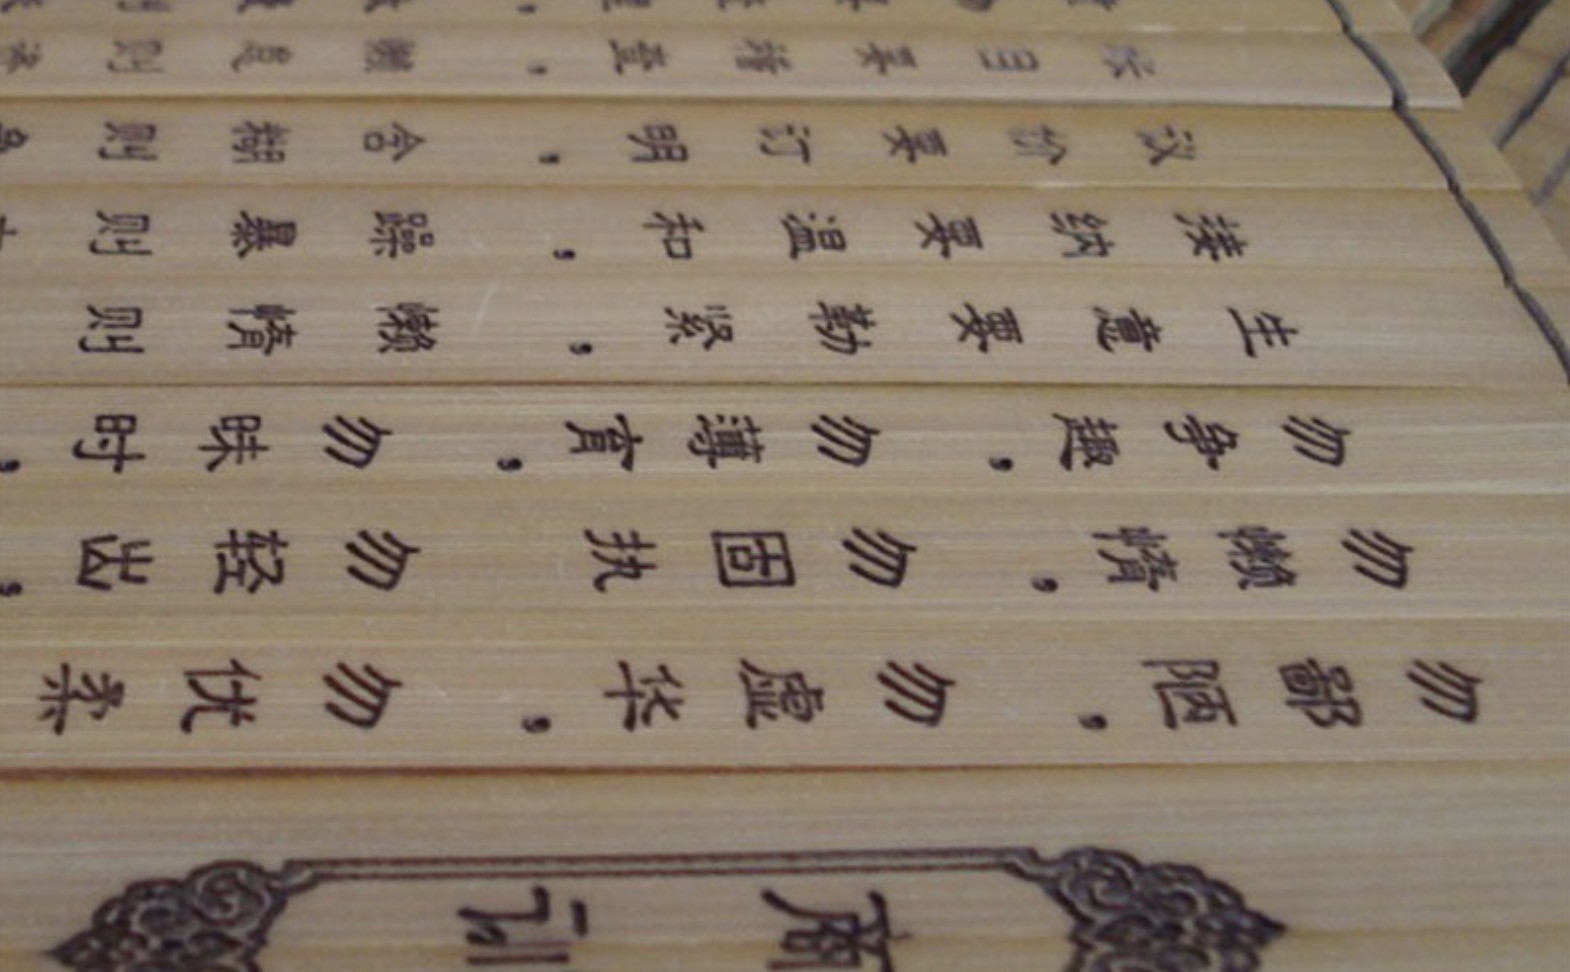 商训
勿鄙陋,勿虚华,勿优柔
勿懒惰,勿固执 勿轻出,
勿争趣,勿薄育,勿昧时,
生意要勤紧,懒惰则
接纳要温和,躁暴则
议价要订明,含糊则
账目要稽查,懒怠则